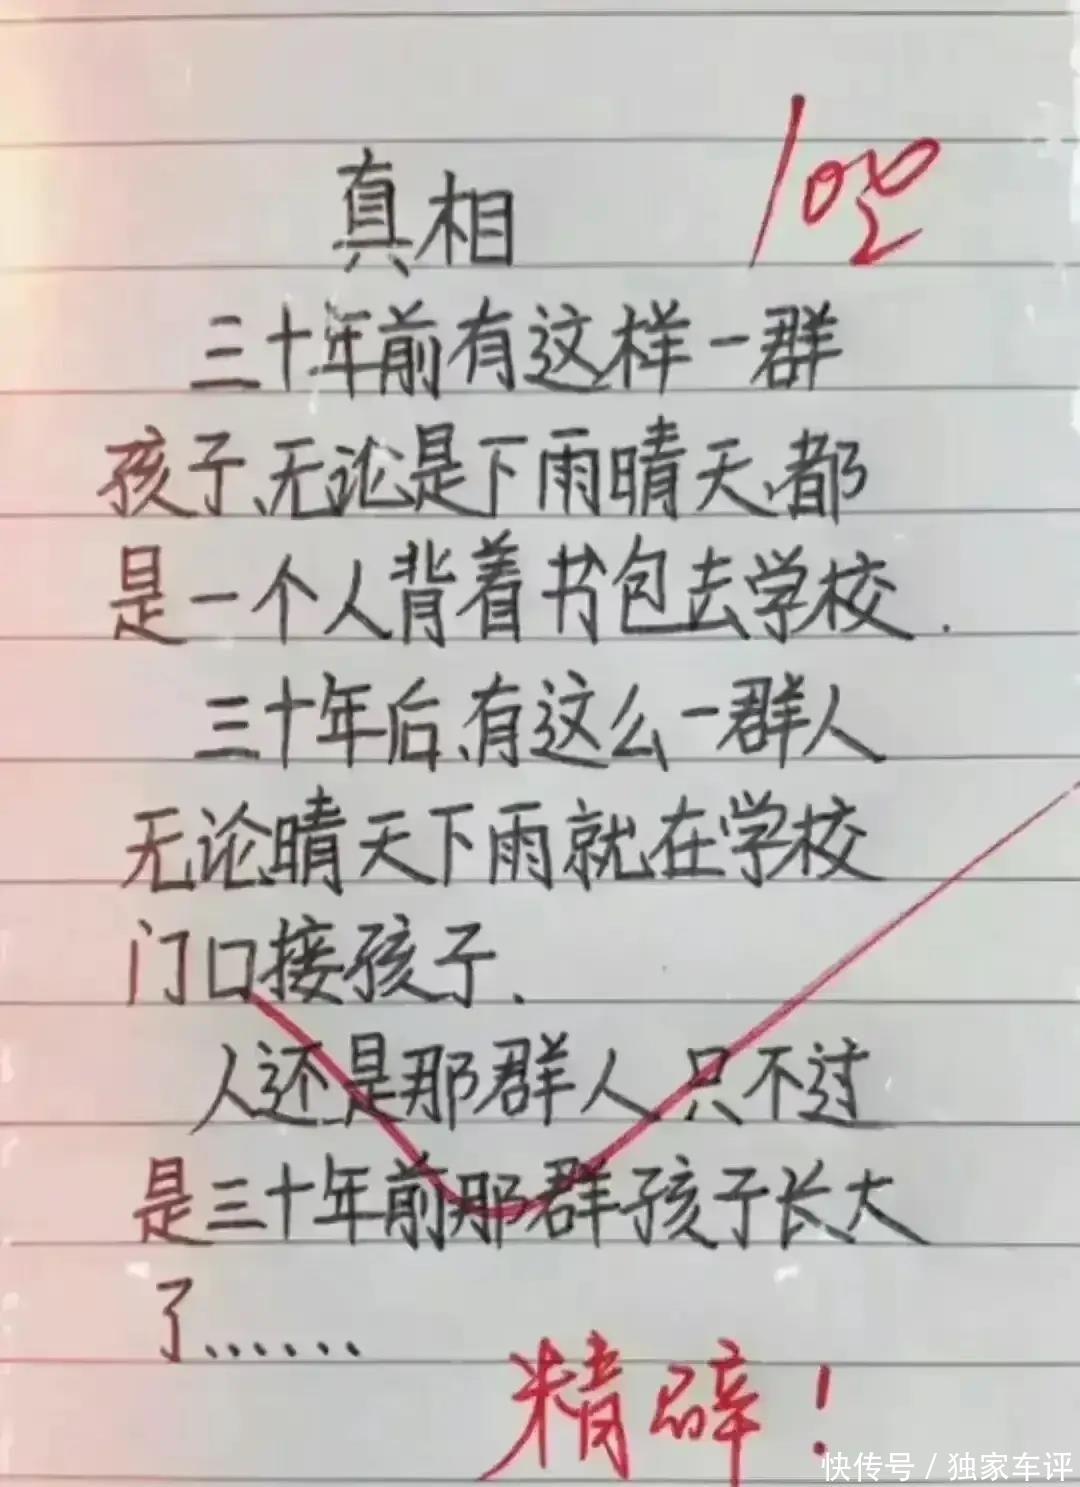 真相
100
三十年前有这样一群
孩子、无论是下雨晴天、都
是一个人背着书包去学校.
三十年后、有这么一群人
无论晴天下雨就在学校
门口接孩子.
人还是那群人、只不过
是三十年前那群孩子长大
了......
精辟!
快传号/独家车评